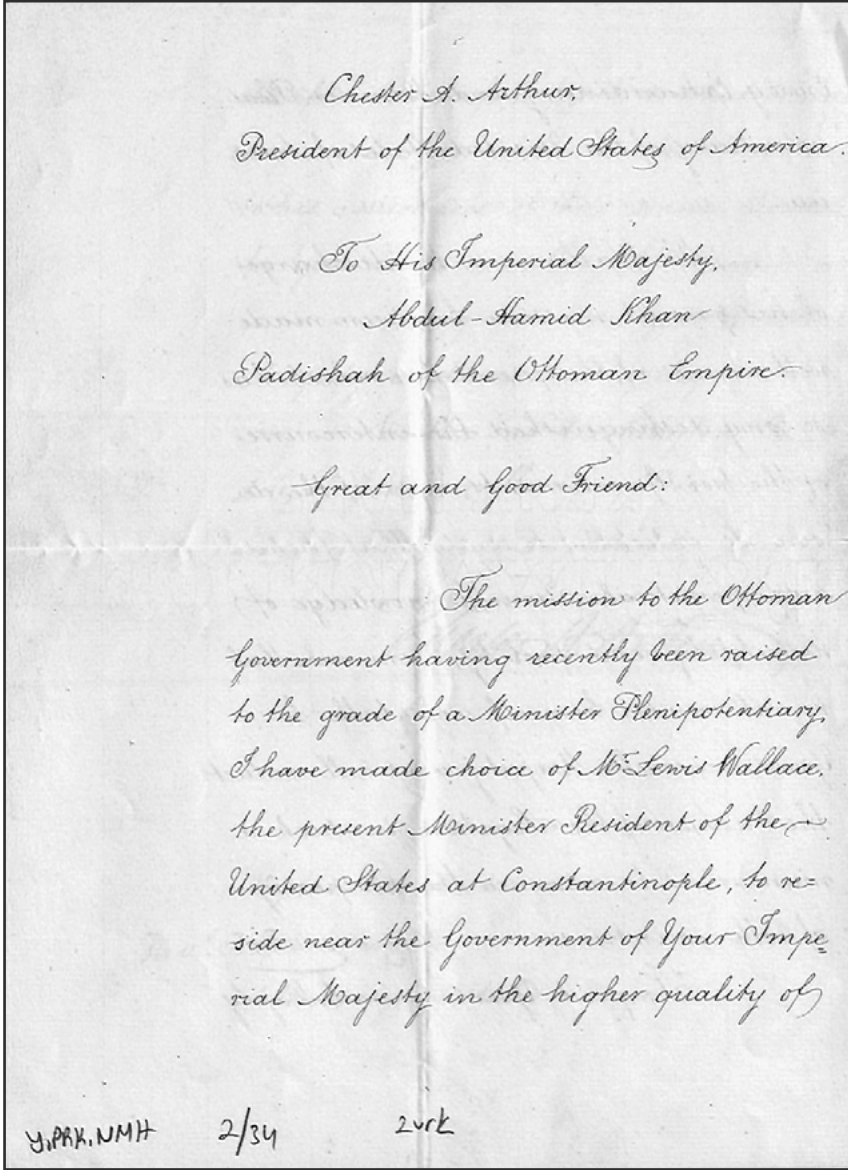 Chester A. Arthur,
President of the United States of America.
To His Imperial Majesty,
Abdul-Hamid Khan
Padishah of the Ottoman Empire.
Great and Good Friend:
The mission to the Ottoman
Government having recently been raised
to the grade of a Minister Plenipotentiary,
I have made choice of Mr. Lewis Wallace,
the present Minister Resident of the
United States at Constantinople, to re=
side near the Government of Your Impe=
rial Majesty in the higher quality of
Y.PRK.NMH 2/34 2vrk